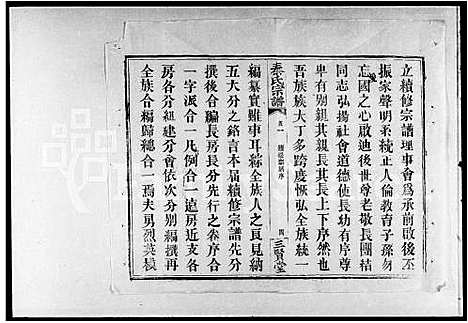 立續修宗譜理事會爲承前啟後不
振家聲明系統正人倫教育子孫勿
忘國之心啟迪後世尊老敬長團結
同志弘揚社會道德使長幼有序尊
卑有別親其親長其長上下序然也
吾族族大丁多跨度恢弘全族統一
秦氏宗譜
卷一
四
三賢堂
編纂實雖事耳綜全族人之良見納
五大分之銘言本屆續修宗譜先分
撰後合騙長房長分先行之卷序合
一字派合一凡例合一遠房近支各
房各分組建分會依次分別編撰再
全族合編歸總合一焉夫男烈英模